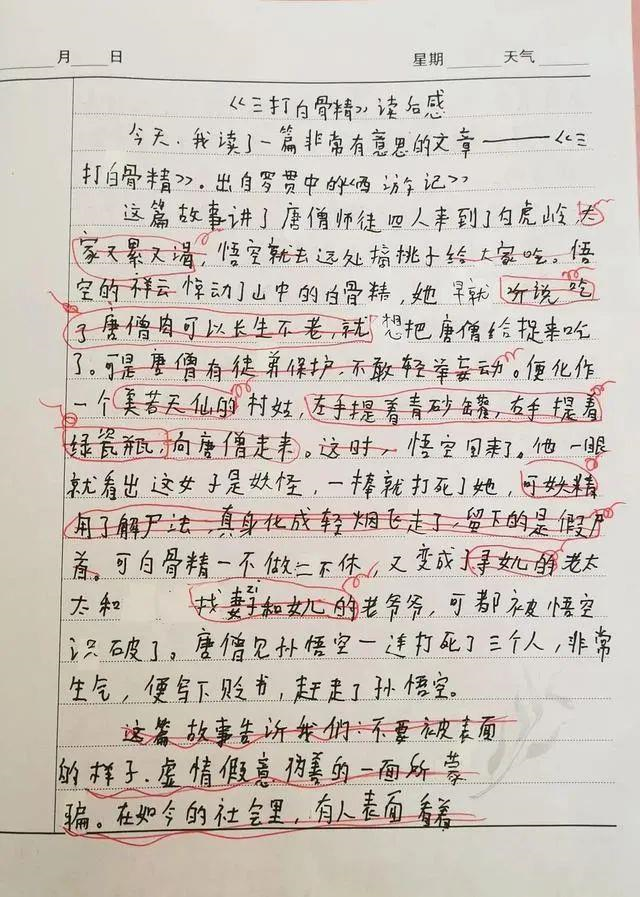 月 日 星期 天气
《三打白骨精》读后感
今天,我读了一篇非常有意思的文章——《三
打白骨精》。出自罗贯中的《西游记》
这篇故事讲了唐僧师徒四人来到了白虎岭,大
家又累又渴,悟空就去远处摘桃子给大家吃。悟
空的祥云惊动了山中的白骨精,她早就听说吃
了唐僧肉可以长生不老,就想把唐僧给捉来吃
了。可是唐僧有徒弟保护,不敢轻举妄动。便化作
一个美若天仙的村姑,左手提着青砂罐,右手提着
绿瓷瓶,向唐僧走来。这时,悟空回来了。他一眼
就看出这女子是妖怪,一棒就打死了她,可妖精
用了解尸法,真身化成轻烟飞走了,留下的是假尸
首。可白骨精一不做二不休,又变成了寻女儿的老太
太和 找妻子和女儿的老爷爷,可都被悟空
zi
识破了。唐僧见孙悟空一连打死了三个人,非常
生气,便写下贬书,赶走了孙悟空。
这篇故事告诉我们:不要被表面
的样子.虚情假意.伪善的一面所蒙
骗。在如今的社会里,有人表面看着